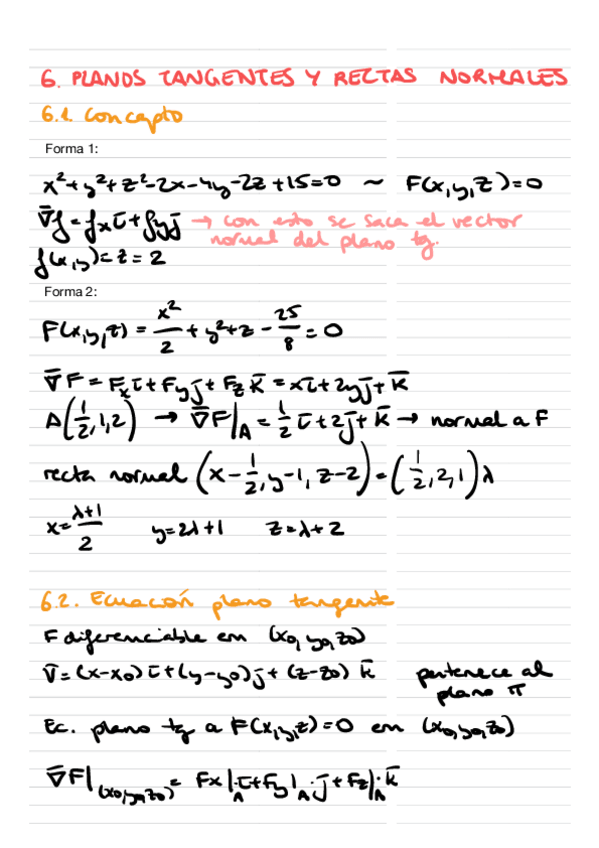 6. PLANOS TANGENTES Y RECTAS NORMALES
6.1. Concepto
Forma 1:
x²+y²+z²-2x-4y-2z+15=0 ~ F(x,y,z)=0
∇̄f = fx ī + fy j̄ → con esto se saca el vector
normal del plano tg.
f(x,y)=z=2
Forma 2:
F(x,y,z) = x²/2 + y²+z - 25/8 = 0
∇̄F = Fx ī + Fy j̄ + Fz k̄ = xī + 2y j̄ + k̄
A(1/2,1,2) → ∇̄F|A = 1/2 ī + 2j̄ + k̄ → normal a F
recta normal (x-1/2, y-1, z-2) = (1/2, 2, 1) λ
x = (λ+1)/2 y=2λ+1 z=λ+2
6.2. Ecuación plano tangente
F diferenciable em (x0, y0, z0)
v̄ = (x-x0) ī + (y-y0) j̄ + (z-z0) k̄ pertenece al
plano π
Ec. plano tg a F(x,y,z)=0 em (x0,y0,z0)
∇̄F|(x0,y0,z0) = Fx|A·ī + Fy|A·j̄ + Fz|A·k̄